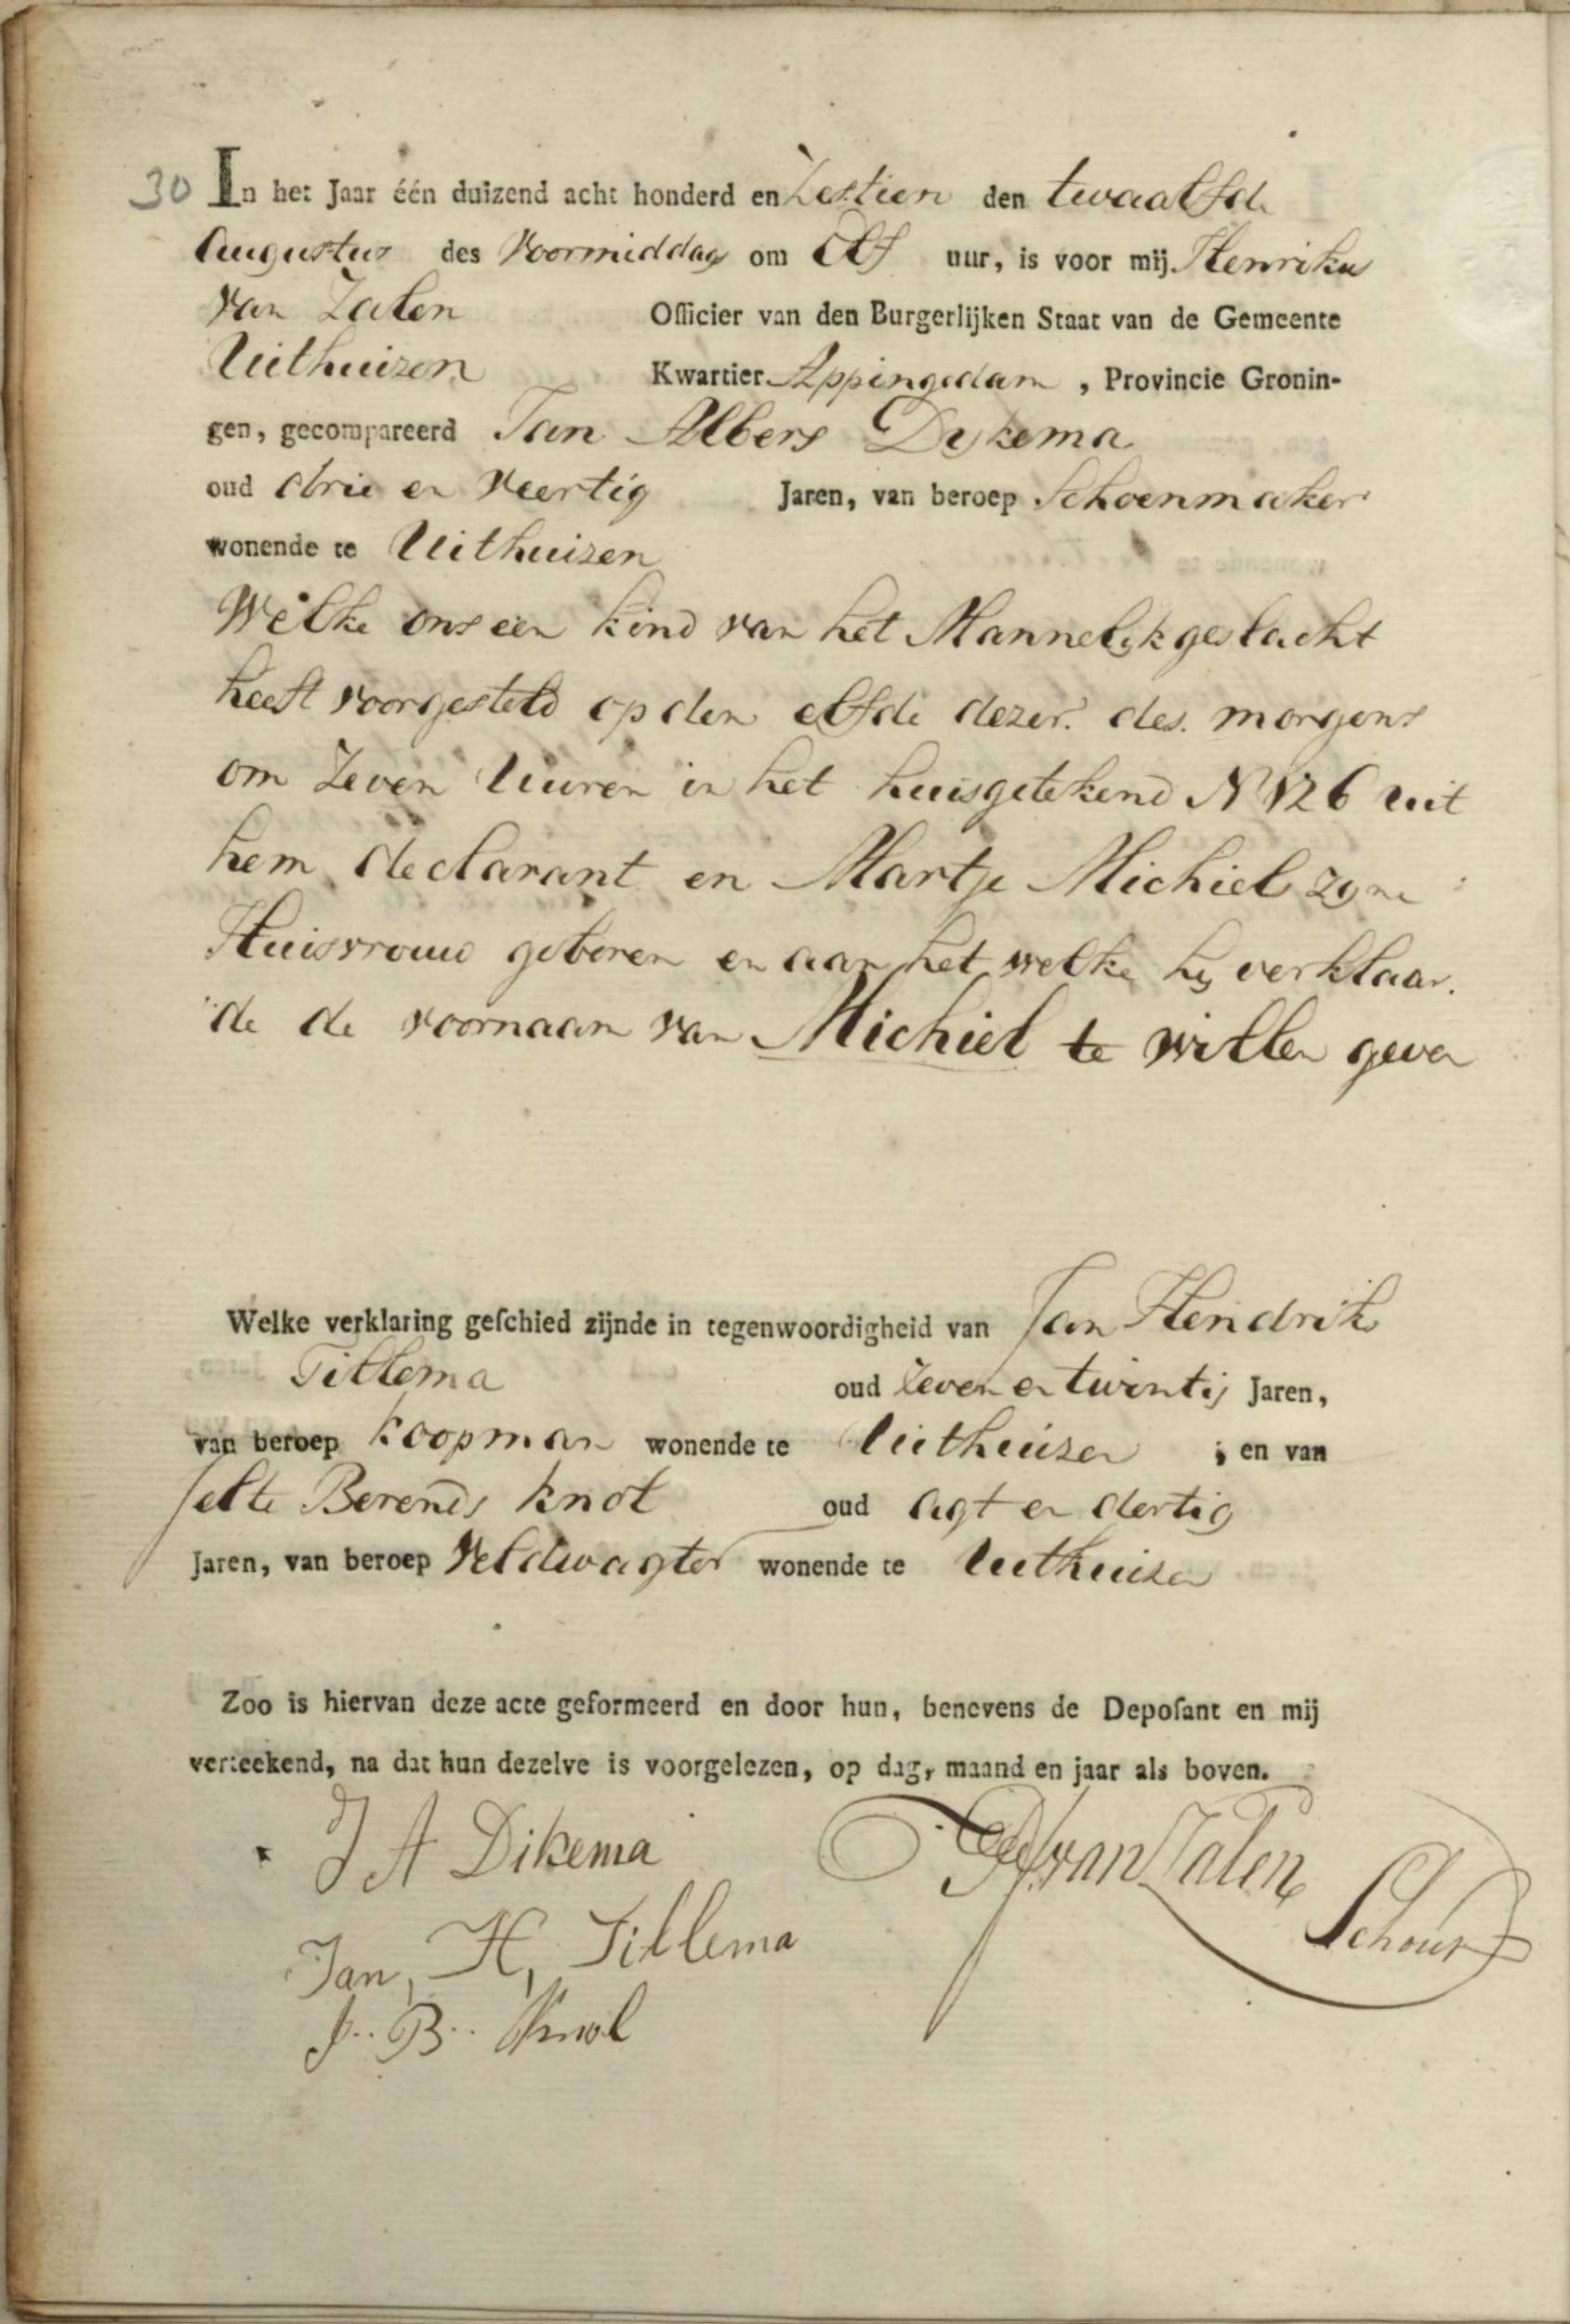 30 In het Jaar één duizend acht honderd en Zestien den twaalfde
Augustus des Voormiddag om Elf uur, is voor mij Henrikus
van Zalen Officier van den Burgerlijken Staat van de Gemeente
Uithuizen Kwartier Appingedam, Provincie Gronin-
gen, gecompareerd Jan Albers Dykema
oud drie en Veertig Jaren, van beroep Schoenmaker
wonende te Uithuizen
Welke ons een kind van het Mannelyk geslacht
heeft voorgesteld op den elfde dezer des morgens
om Zeven Uuren in het huis getekend N 126 uit
hem declarant en Martje Michiel zyne
Huisvrouw geboren en aan het welke hy verklaar.
de de voornaam van Michiel te willen geven
Welke verklaring geſchied zijnde in tegenwoordigheid van Jan Hendrik
Tillema oud Zeven en twintig Jaren,
van beroep koopman wonende te Uithuizen ; en van
Jelte Berends knol oud agt en dertig
Jaren, van beroep Veldwagter wonende te Uithuizen
Zoo is hiervan deze acte geformeerd en door hun, benevens de Depoſant en mij
verteekend, na dat hun dezelve is voorgelezen, op dag, maand en jaar als boven.
J A Dikema van Zalen
Jan, H, Tillema Schout
J.. B.. Knol